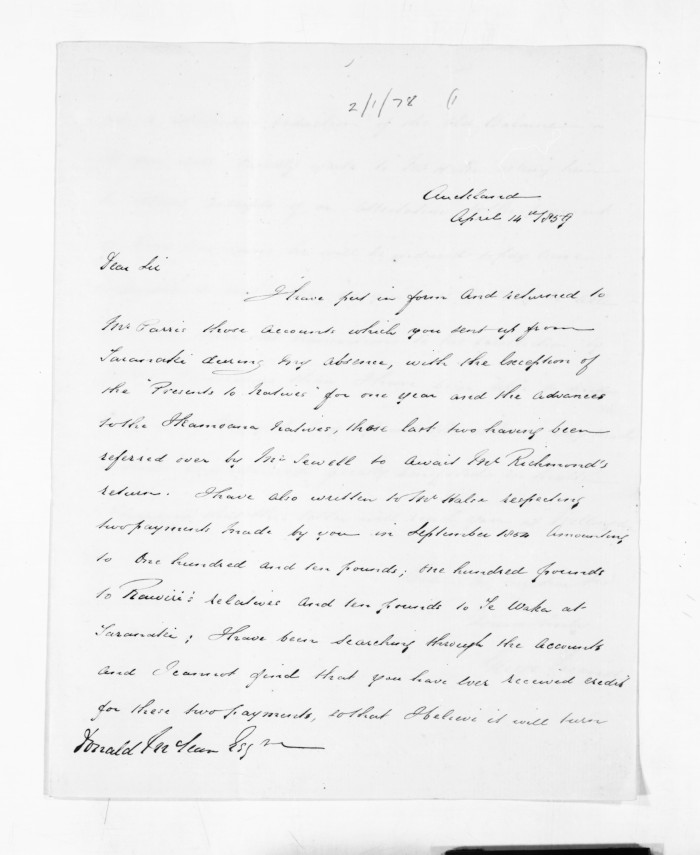 2/1/78 (1
Auckland
April 14th 1859
Dear Sir
I have put in form and returned to
Mr Parris those accounts which you sent up from
Taranaki during my absence, with the exception of
the "Presents to Natives" for one year and the advances
to the Natives, those last two having been
referred over by Mr Sewell to await Mr Richmond's
return. I have also written to Mr Halse respecting
two payments made by you in September 1854 amounting
to One hundred and ten pounds; one hundred pounds
to Rawiri's relatives and ten pounds to Te Waka at
Taranaki; I have been searching through the accounts
and I cannot find that you have ever received credit
for these two payments, so that I believe it will turn
Donald McLean Esqr